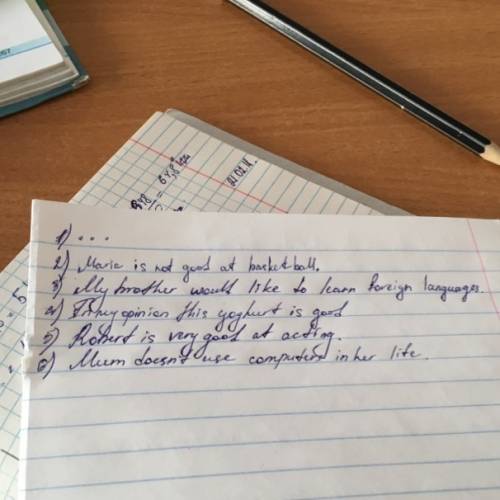 1) ...
2) Marie is not good at basketball.
3) My brother would like to learn foreign languages.
4) In my opinion this yoghurt is good
5) Robert is very good at acting.
6) Mum doesn't use computers in her life.